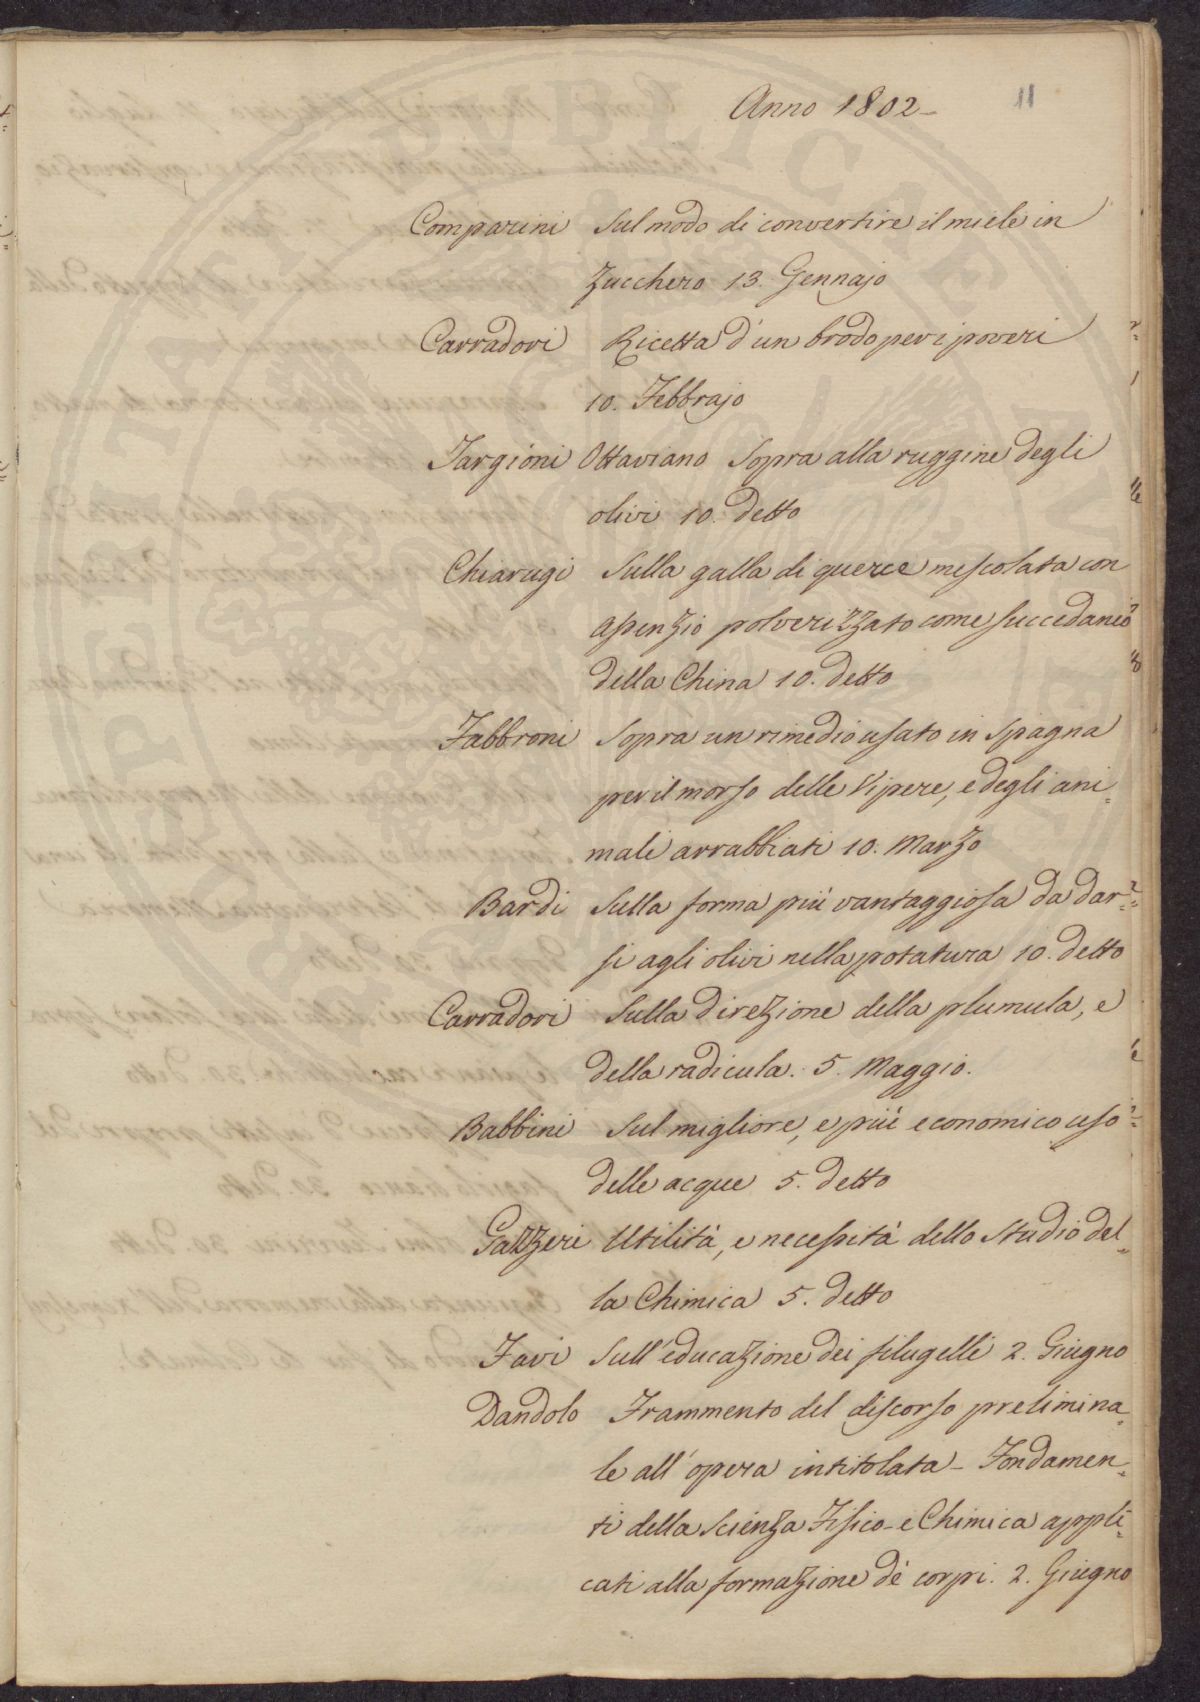 Anno 1802 - 11
Comparini Sul modo di convertire il miele in
Zucchero 13. Gennajo
Carradori Ricetta d'un brodo per i poveri
10. Febbrajo
Targioni Ottaviano Sopra alla ruggine degli
olivi 10. detto
Chiarugi Sulla galla di querce mescolata con
assenzio polverizzato come succedaneo
della China 10. detto
Fabbroni Sopra un rimedio usato in Spagna
per il morso delle Vipere, e degli ani=
mali arrabbiati 10. Marzo
Bardi Sulla forma più vantaggiosa da dar=
si agli olivi nella potatura 10. detto
Carradori Sulla direzione della plumula, e
della radicula. 5. Maggio.
Babbini Sul migliore, e più economico uso
delle acque 5. detto
Gazzeri Utilità, e necessità dello Studio del=
la Chimica 5. detto
Favi Sull'educazione dei filugelli 2. Giugno
Dandolo Frammento del discorso prelimina=
le all'opera intitolata - Fondamen=
ti della Scienza Fisico-Chimica appli=
cati alla formazione de' corpi. 2. Giugno